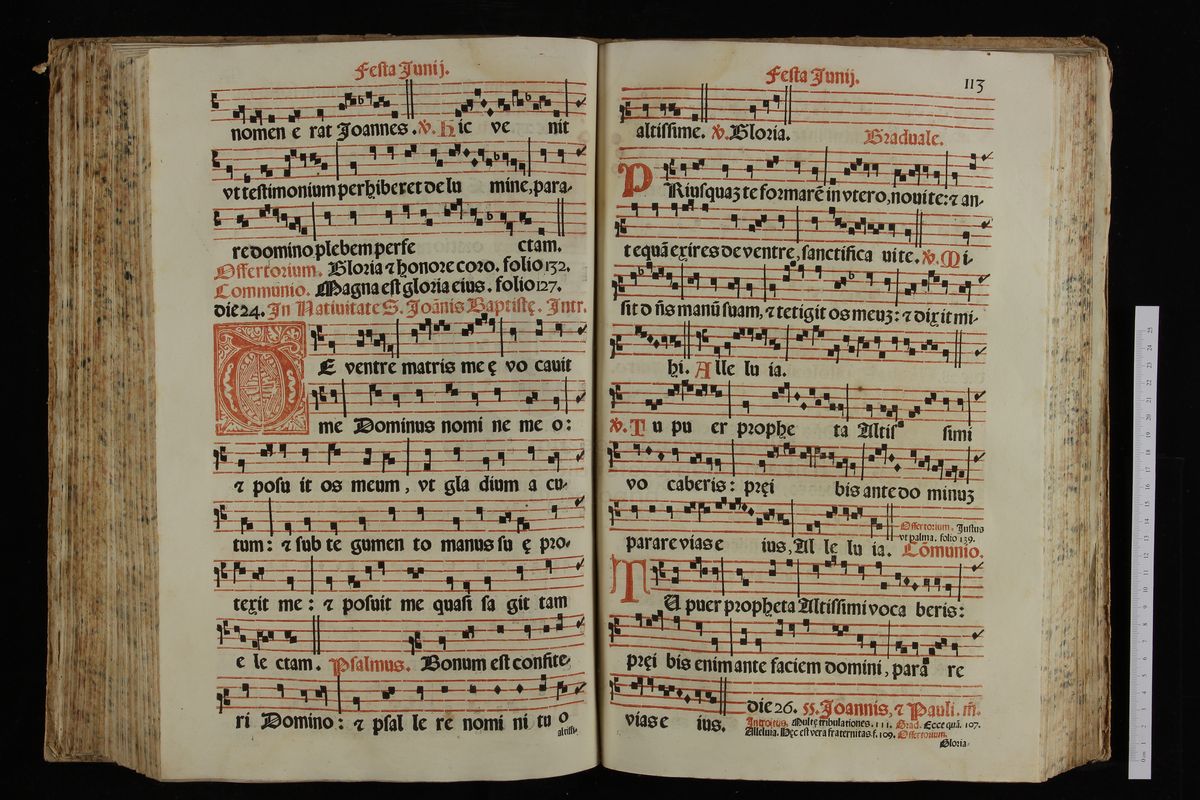 Festa Junij.
nomen e rat Joannes. ℣. Hic ve nit
vt testimonium perhiberet de lu mine, para-
re domino plebem perfe ctam.
Offertorium. Gloria ⁊ honore coro. folio 132.
Communio. Magna est gloria eius. folio 127.
die 24. In Natiuitate S. Joãnis Baptistę. Intr.
DE ventre matris me ę vo cauit
me Dominus nomi ne me o:
⁊ posu it os meum, vt gla dium a cu-
tum: ⁊ sub te gumen to manus su ę pro-
texit me: ⁊ posuit me quasi sa git tam
e le ctam. Psalmus. Bonum est confite-
ri Domino: ⁊ psal le re nomi ni tu o
altissi-
Festa Junij. 113
altissime. ℣. Gloria. Graduale.
PRiusquaʒ te formarẽ in vtero, noui te: ⁊ an-
tequã exires de ventre, sanctifica ui te. ℣. Mi-
sit dñs manũ suam, ⁊ tetigit os meuʒ: ⁊ dixit mi-
hi. Alle lu ia.
℣. Tu pu er prophe ta Altis simi
vo caberis: pręi bis ante do minuʒ
Offertorium. Justus
vt palma. folio 139.
parare vias e ius, Al le lu ia. Cõmunio.
TU puer propheta Altissimi voca beris:
pręi bis enim ante faciem domini, para re
vias e ius. die 26. SS. Joannis, ⁊ Pauli. m̃.
Introitus. Multę tribulationes. 111. Grad. Ecce quã. 107.
Alleluia. Hęc est vera fraternitas f. 109. Offertorium.
Gloria-